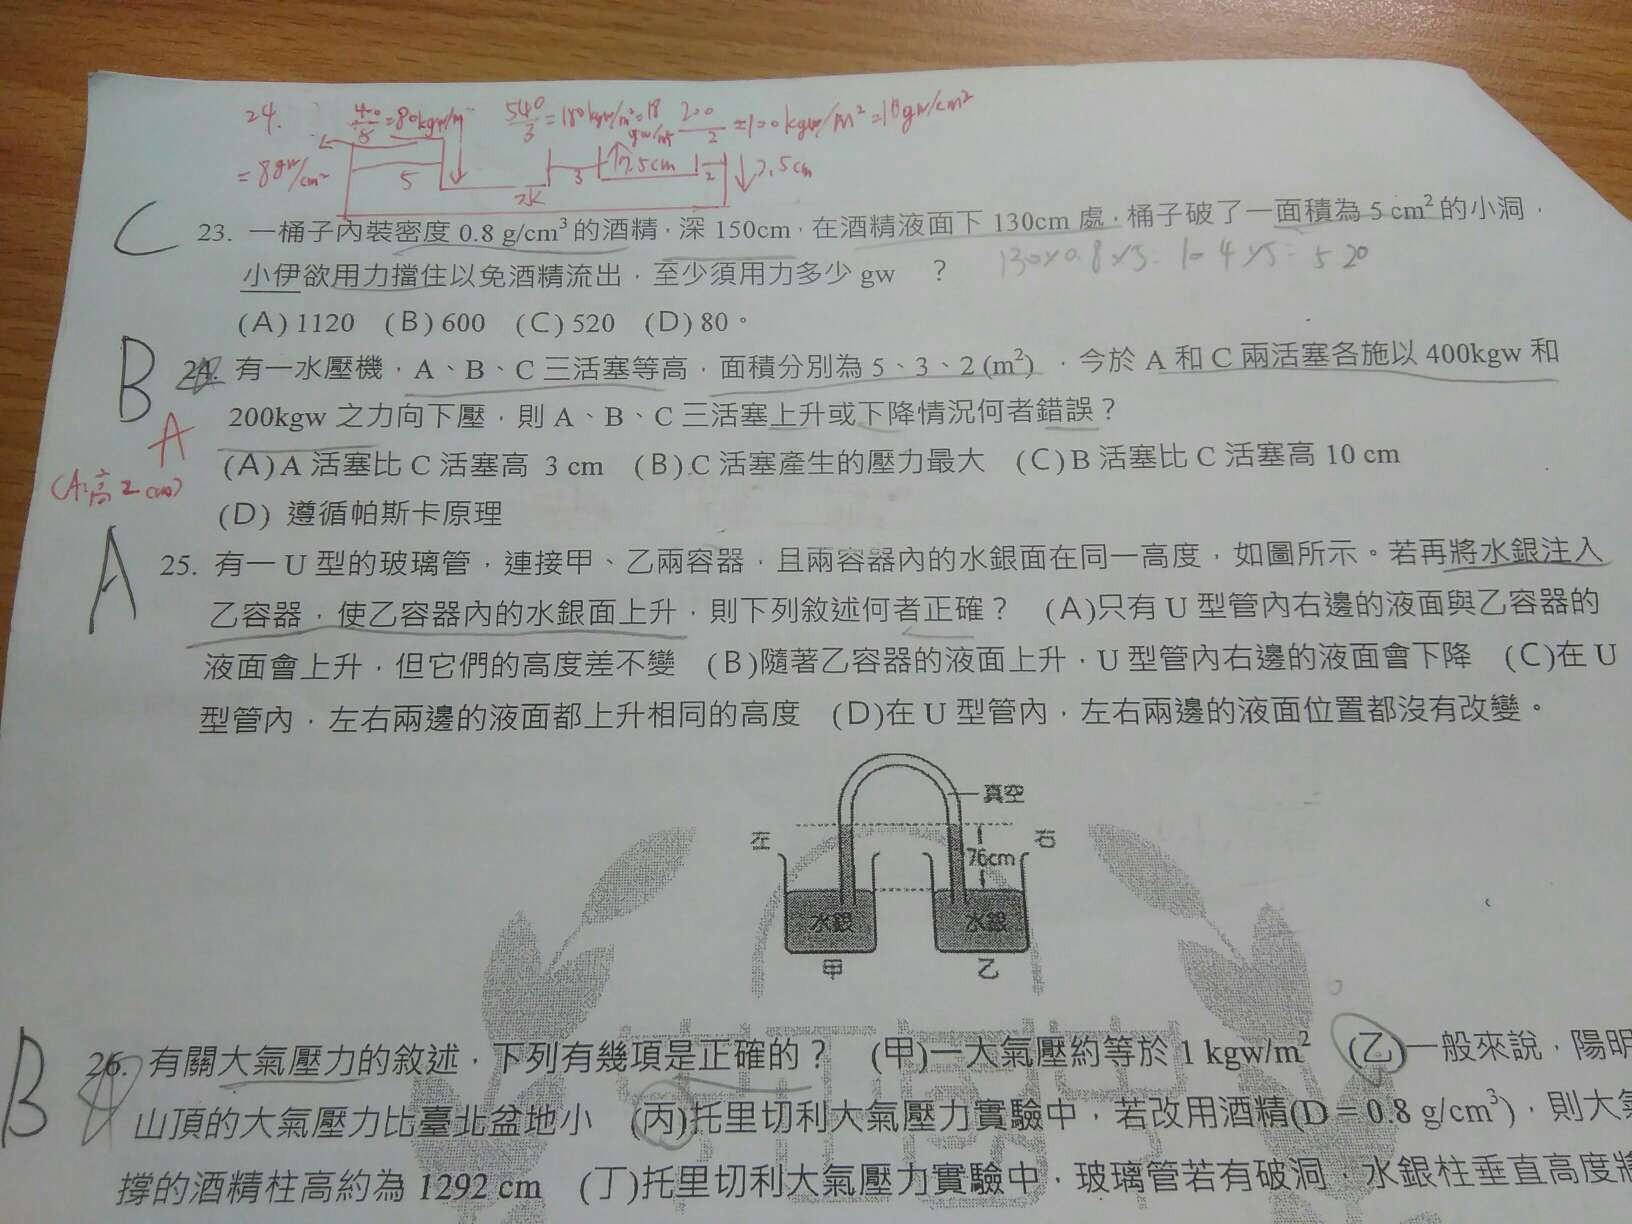 24. 400/5=80kgw/m 540/3=180kgw/m²=18 gw/m² 200/2=100kgw/m²=10gw/cm²
=8gw/cm² 5 3 7.5cm 2 7.5cm
2K
C 23. 一桶子內裝密度 0.8 g/cm³ 的酒精，深 150cm，在酒精液面下 130cm 處，桶子破了一面積為 5 cm² 的小洞，
小伊欲用力擋住以免酒精流出，至少須用力多少 gw ？ 130×0.8×5=104×5=520
(A) 1120 (B) 600 (C) 520 (D) 80。
B 24. 有一水壓機，A、B、C 三活塞等高，面積分別為 5、3、2 (m²) ，今於 A 和 C 兩活塞各施以 400kgw 和
200kgw 之力向下壓，則 A、B、C 三活塞上升或下降情況何者錯誤？
A
(A) A 活塞比 C 活塞高 3 cm (B) C 活塞產生的壓力最大 (C) B 活塞比 C 活塞高 10 cm
(A:高 2 cm)
(D) 遵循帕斯卡原理
A 25. 有一 U 型的玻璃管，連接甲、乙兩容器，且兩容器內的水銀面在同一高度，如圖所示。若再將水銀注入
乙容器，使乙容器內的水銀面上升，則下列敘述何者正確？ (A)只有 U 型管內右邊的液面與乙容器的
液面會上升，但它們的高度差不變 (B)隨著乙容器的液面上升，U 型管內右邊的液面會下降 (C)在 U
型管內，左右兩邊的液面都上升相同的高度 (D)在 U 型管內，左右兩邊的液面位置都沒有改變。
真空
左 右
76cm
水銀 水銀
甲 乙
B 26. 有關大氣壓力的敘述，下列有幾項是正確的？ (甲)一大氣壓約等於 1 kgw/m² (乙)一般來說，陽明
山頂的大氣壓力比臺北盆地小 (丙)托里切利大氣壓力實驗中，若改用酒精(D = 0.8 g/cm³)，則大氣
撐的酒精柱高約為 1292 cm (丁)托里切利大氣壓力實驗中，玻璃管若有破洞，水銀柱垂直高度將